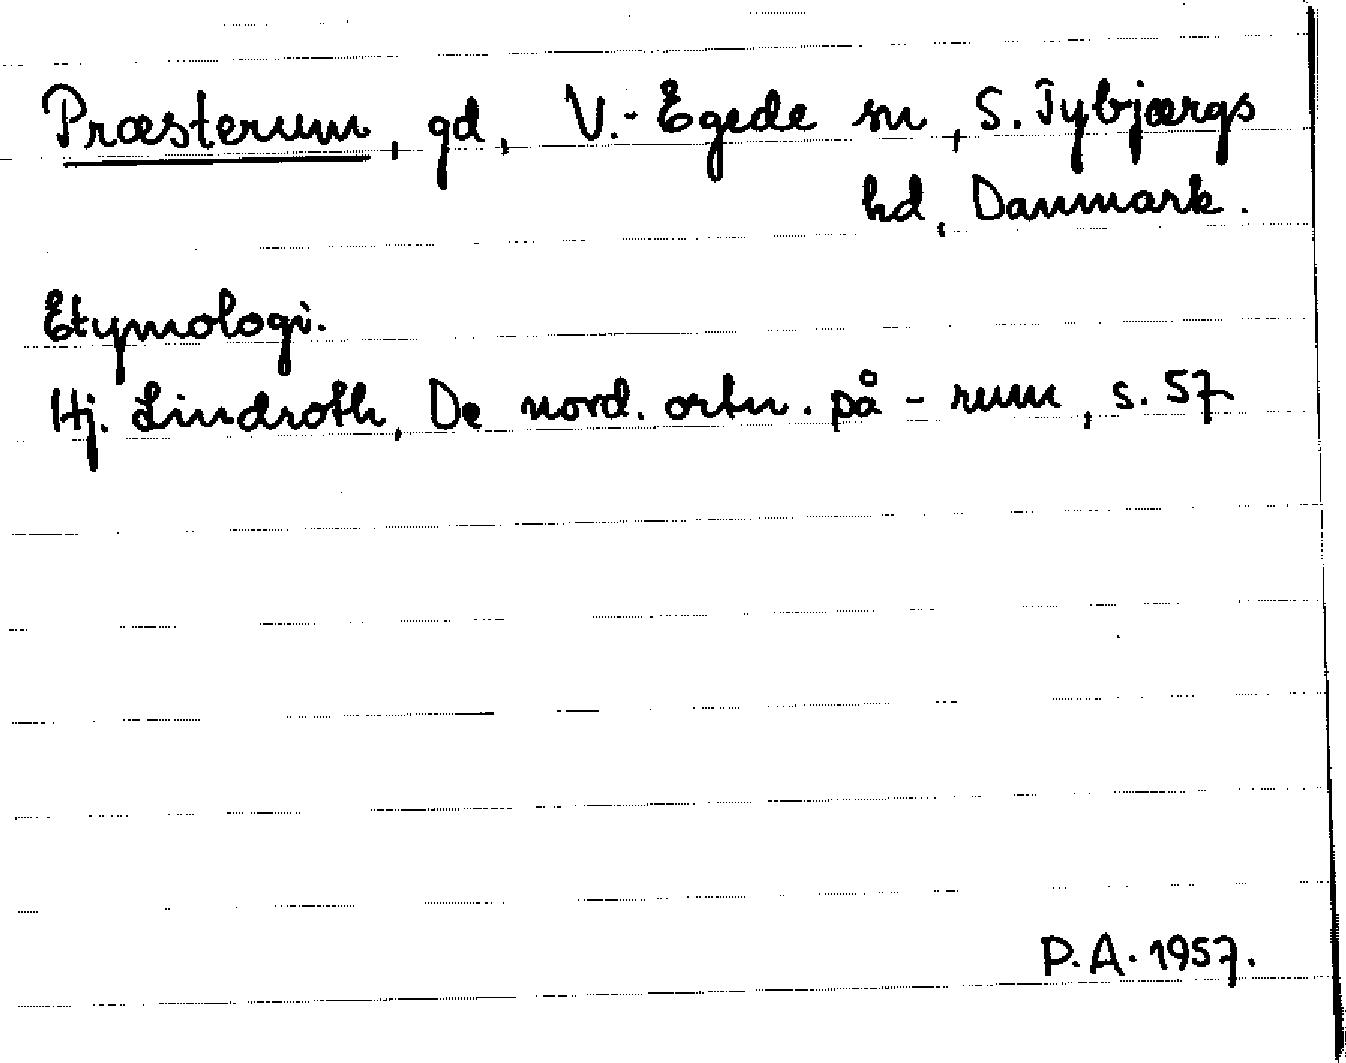 Præsterum, gd, V.-Egede sn, S. Tybjærgs
hd, Danmark.
Etymologi.
Hj. Lindroth, De nord. ortn. på -rum, s. 57
P.A. 1957.